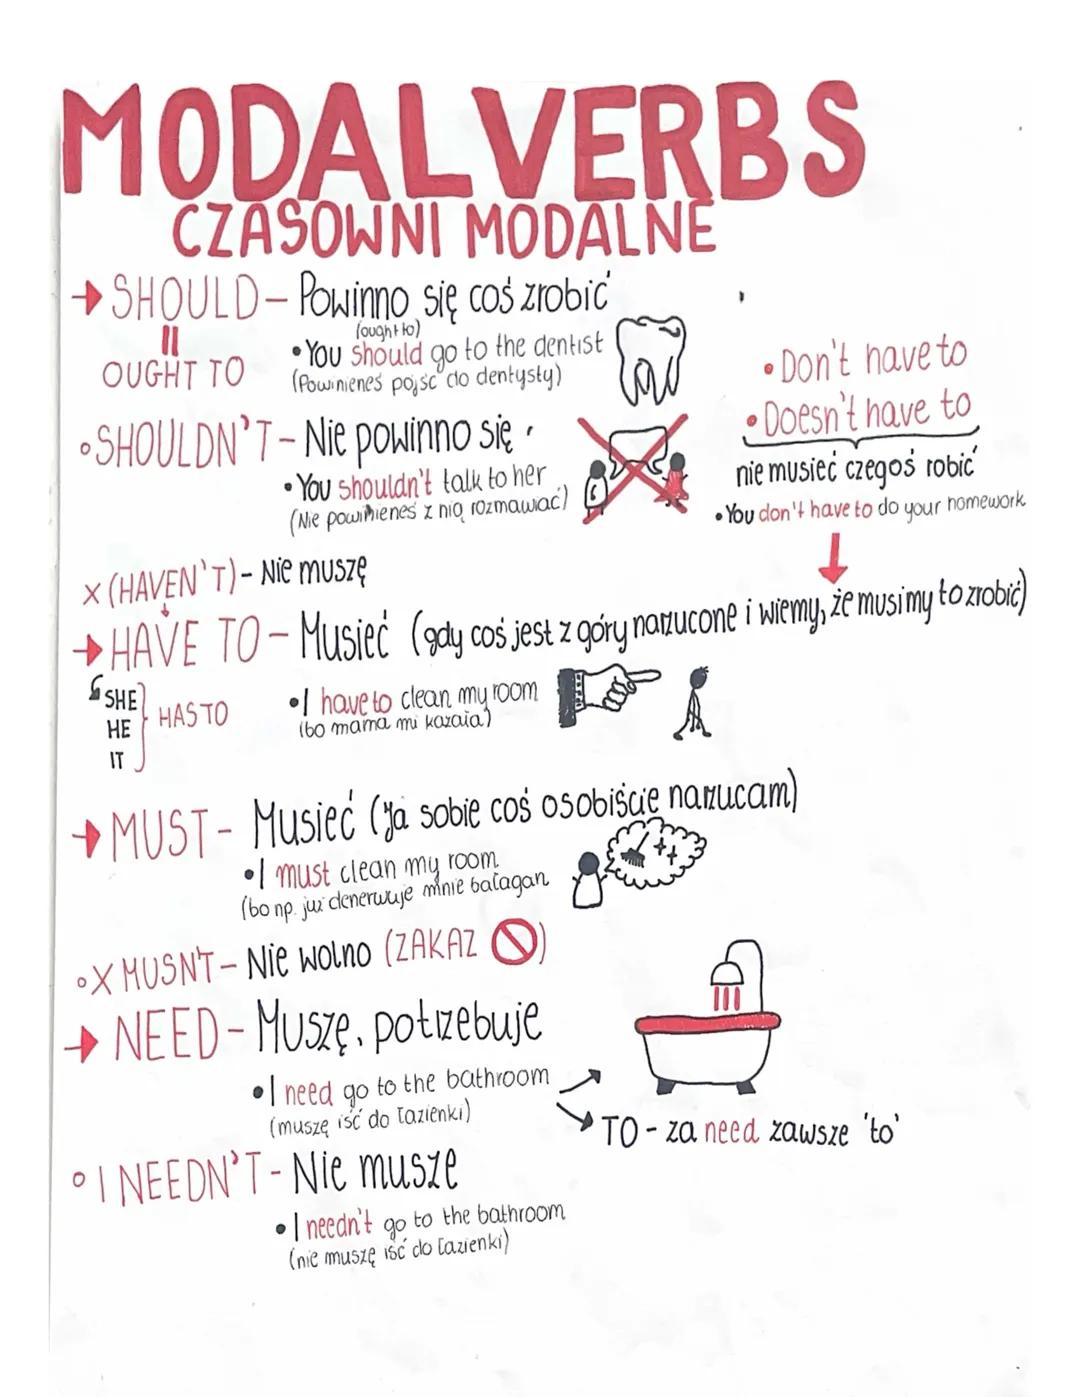 MODAL VERBS
CZASOWNI MODALNE
→ SHOULD - Powinno się coś zrobić
=
OUGHT TO
(ought to)
• You should go to the dentist
(Powinieneś pojść do dentysty)
• SHOULDN'T - Nie powinno się
• You shouldn't talk to her
(Nie powinieneś z nią rozmawiać)
• Don't have to
• Doesn't have to
nie musieć czegoś robić
• You don't have to do your homework
x (HAVEN'T) - Nie muszę
→ HAVE TO - Musieć (gdy coś jest z góry narzucone i wiemy, że musimy to zrobić)
SHE
HE
IT
HAS TO
• I have to clean my room
(bo mama mi kazała)
→ MUST - Musieć (ja sobie coś osobiście narzucam)
• I must clean my room
(bo np. już denerwuje mnie bałagan
• X MUSN'T - Nie wolno (ZAKAZ )
→ NEED - Muszę, potrzebuje
• I need go to the bathroom
(muszę iść do łazienki)
→ TO - za need zawsze 'to'
• I NEEDN'T - Nie musze
• I needn't go to the bathroom
(nie muszę iść do łazienki)